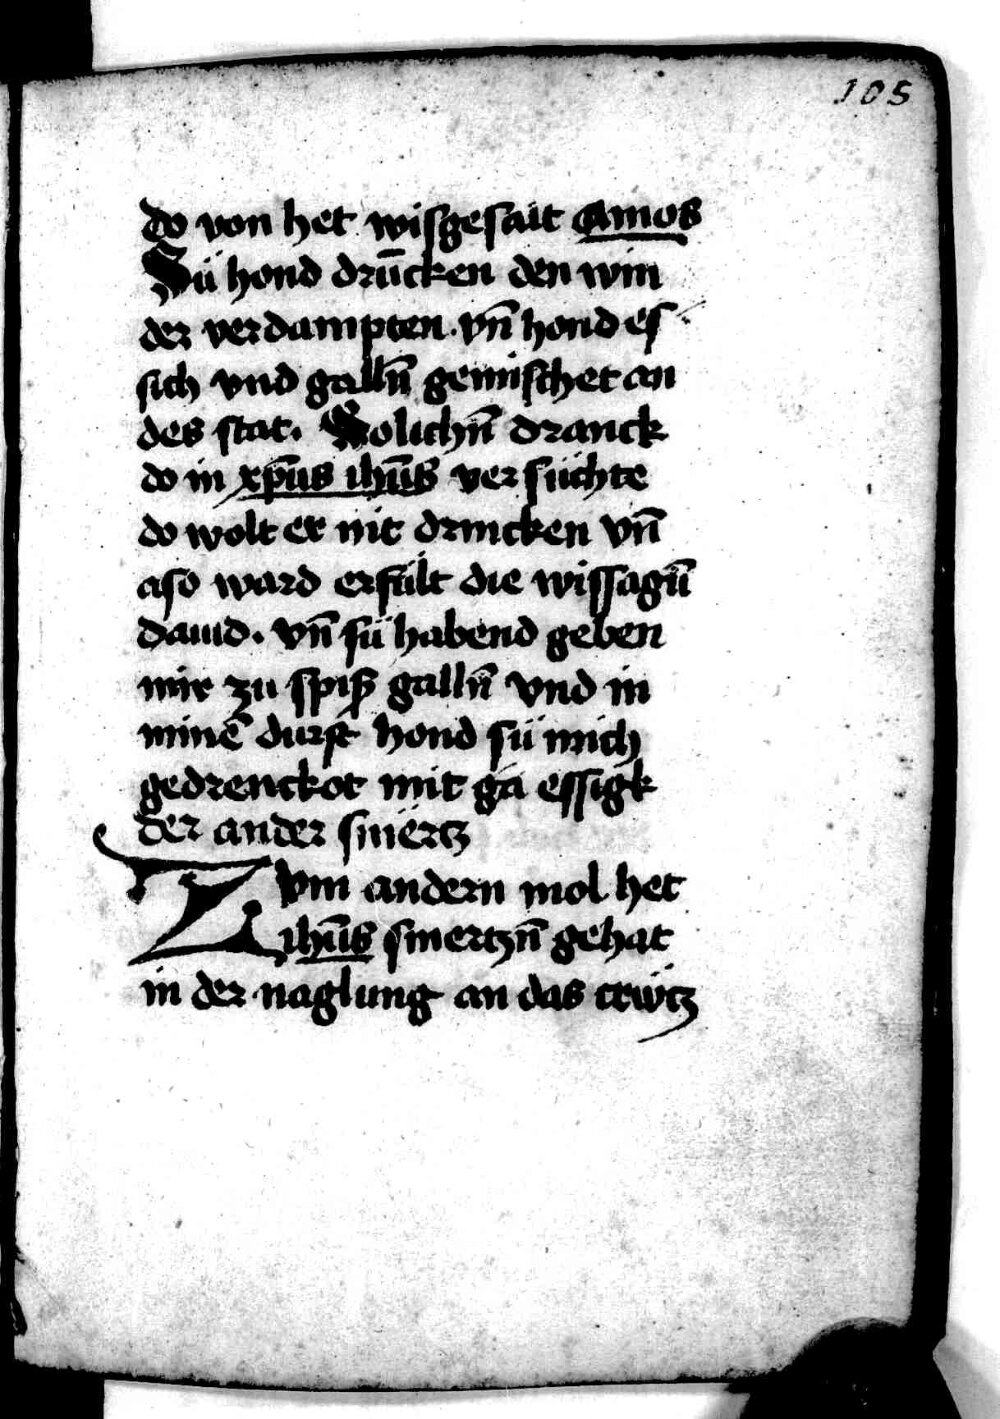 105
do von het wisgesait Amos
Sü hond drūcken den win
der verdampten. vn̄ hond es
sich vnd galln̄ gemischet an
des stat. Solichn̄ dranck
do in xp̄us ihūs versüchte
do wolt er nit drincken vn̄
aso ward erfült die wissagūn
dauid. vn̄ sü habend geben
mir zu spiß galln̄ vnd in
minē durst hond sü mich
gedrenckot mit essigk
der ander smertz
Zvm andern mol het
ihūs smertzn̄ gehat
in der naglung an das crütz